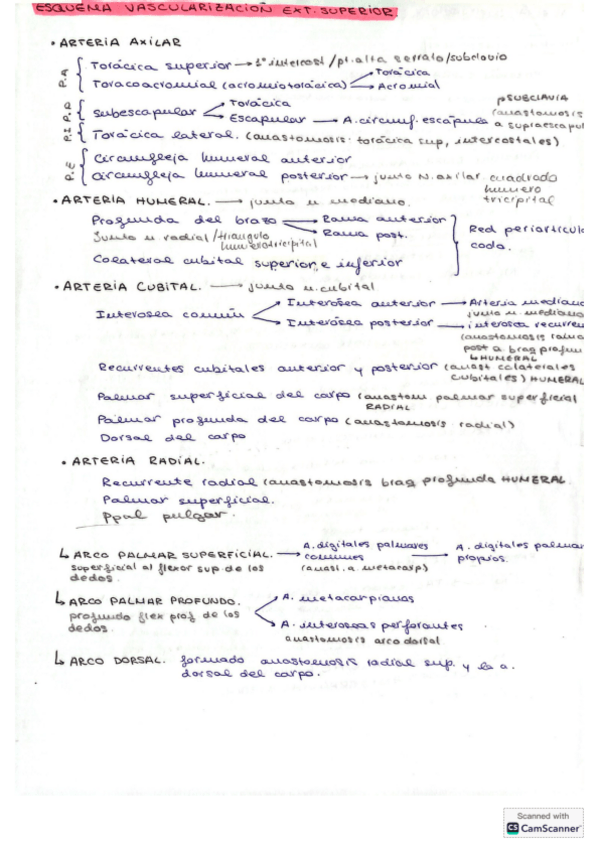 ESQUEMA VASCULARIZACIÓN EXT. SUPERIOR.
• ARTERIA AXILAR
P.A
Torácica superior → 1º intercost / pt. alta serrato/subclavio
Toracoacromial (acromiotorácica) → Torácica
→ Acromial
P.I P.R
Subescapular → Torácica
→ Escapular → A. circunf. escápula
SUBCLAVIA
(anastomosis
a supraescapul
Torácica lateral. (anastomosis torácica sup, intercostales)
P.E
Circunfleja humeral anterior
Circunfleja humeral posterior → junto N. axilar cuadrado
humero
tricipital
• ARTERIA HUMERAL. → junto n mediano.
Profunda del brazo → Rama anterior
→ Rama post.
junto n radial / triangulo
humerotricipital
Red periarticula
codo.
Colateral cubital superior e inferior
• ARTERIA CUBITAL. → junto n. cubital
Interosea común → Interosea anterior → Arteria mediano
junto n. mediano
→ Interósea posterior → interosea recurren
(anastomosis rama
post a braq profun
↳ HUMERAL
Recurrentes cubitales anterior y posterior (anast colaterales
cubitales) HUMERAL
Palmar superficial del carpo (anastom palmar superficial
RADIAL
Palmar profunda del carpo (anastomosis radial)
Dorsal del carpo
• ARTERIA RADIAL.
Recurrente radial (anastomosis braq profunda HUMERAL.
Palmar superficial.
Ppal pulgar.
↳ ARCO PALMAR SUPERFICIAL. → A. digitales palmares → A. digitales palmar
comunes propios.
superficial al flexor sup. de los
dedos
(anast. a metacarp)
↳ ARCO PALMAR PROFUNDO. → A. metacarpianas
profundo flex prof de los
dedos.
→ A. interoseas perforantes
anastomosis arco dorsal
↳ ARCO DORSAL. formado anastomosis radial sup. y la a.
dorsal del carpo.
Scanned with
CS CamScanner